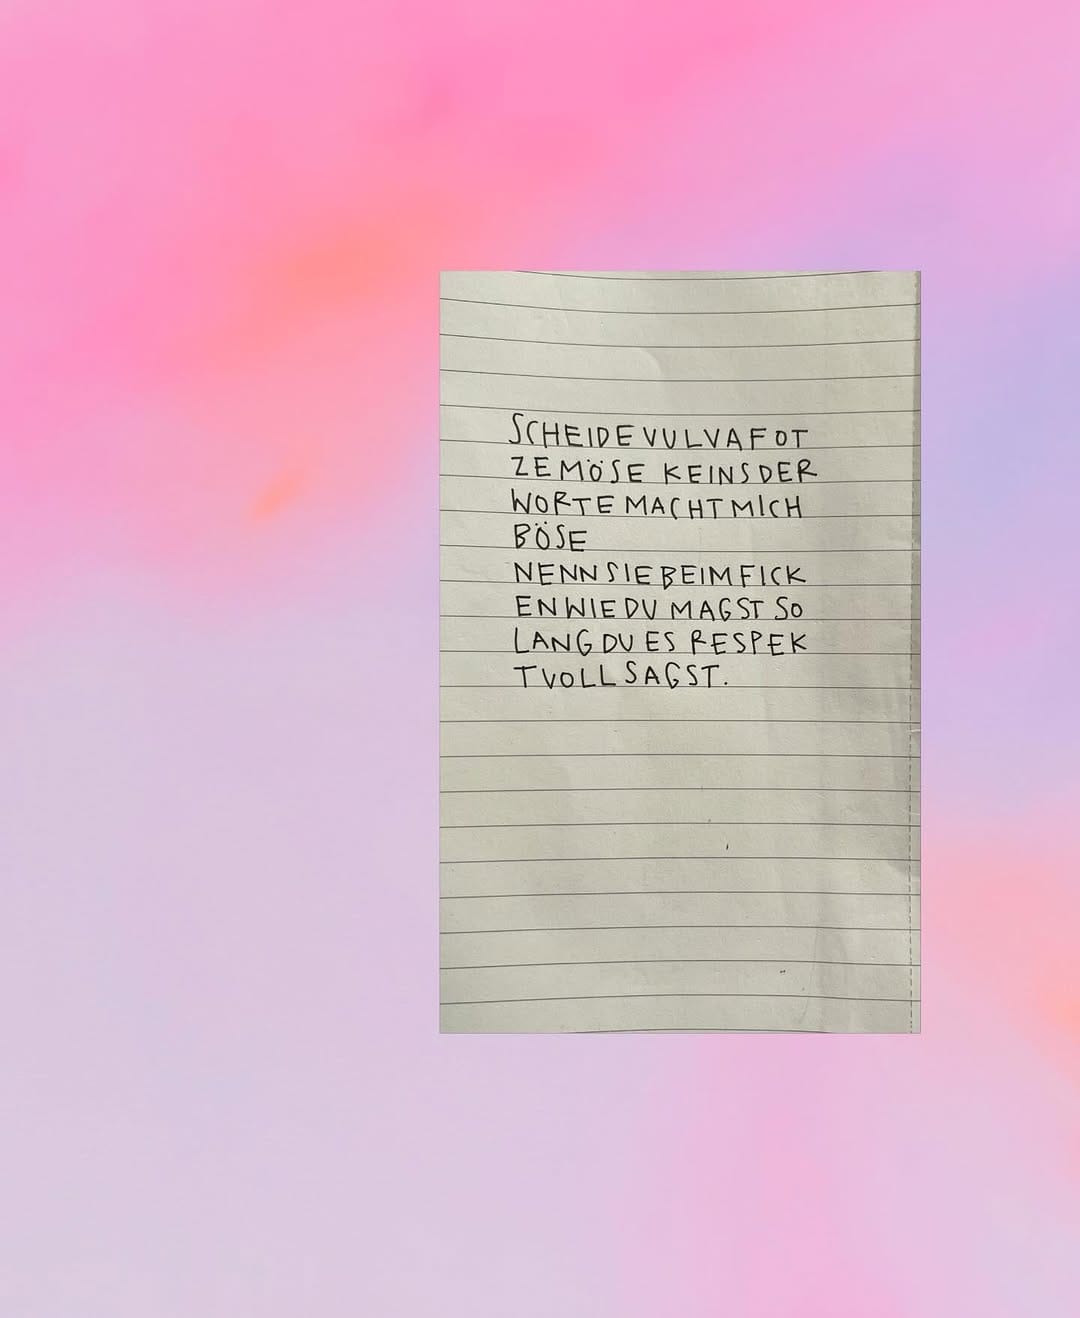 SCHEIDE VULVA FOT
ZE MÖSE KEINS DER
WORTE MACHT MICH
BÖSE
NENN SIE BEIM FICK
EN WIE DU MAGST SO
LANG DU ES RESPEK
TVOLL SAGST.